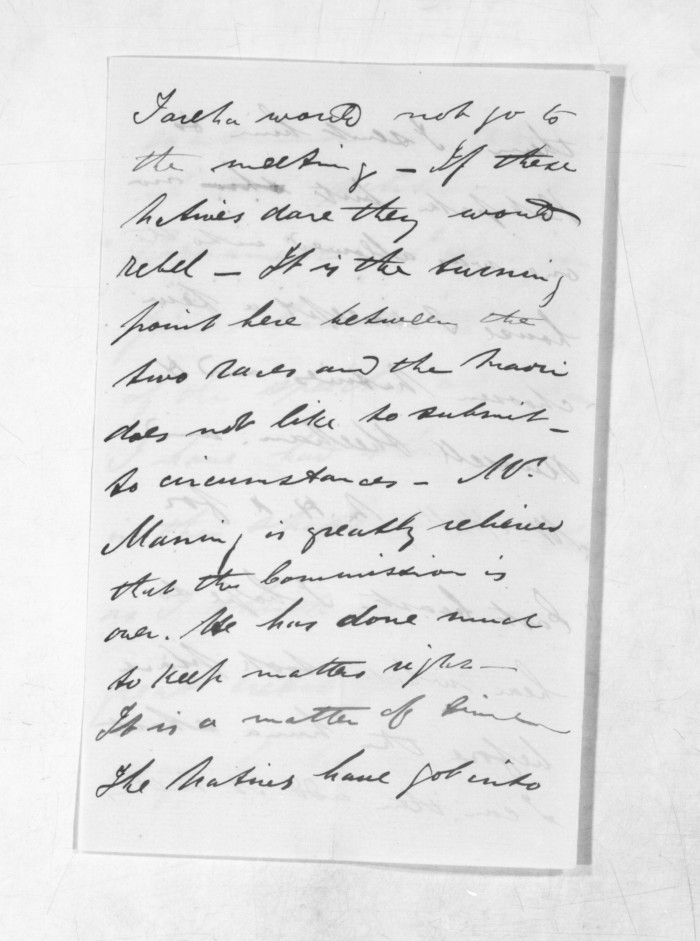 Tareha would not go to
the meeting – If these
Natives dare they would
rebel – It is the turning
point here between the
two races and the Maori
does not like to submit –
to circumstances – Mr.
Maning is greatly relieved
that the Commission is
over. He has done much
to keep matters right –
It is a matter of time
The Natives have got into